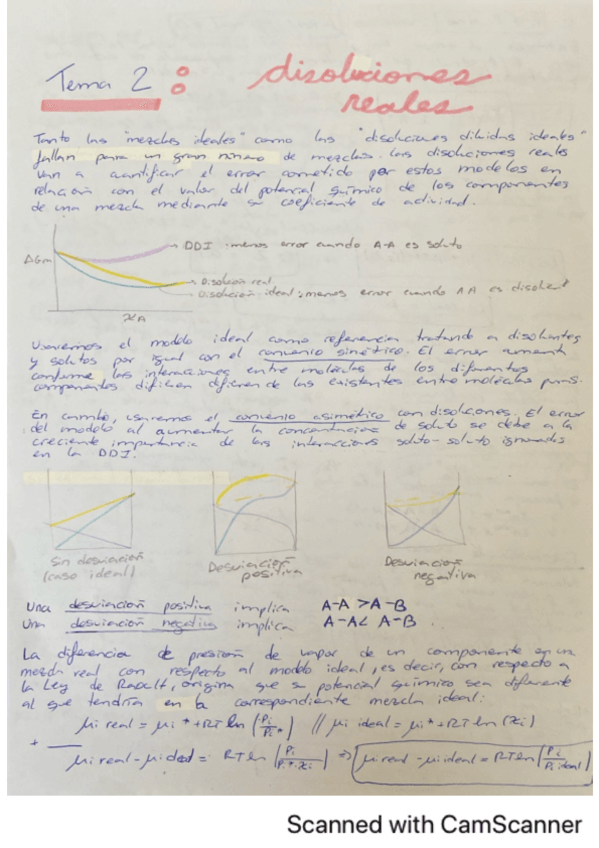 Tema 2 : disoluciones
reales
Tanto las "mezclas ideales" como las "disoluciones diluidas ideales"
fallan para un gran número de mezclas. Las disoluciones reales
van a cuantificar el error cometido por estos modelos en
relación con el valor del potencial químico de los componentes
de una mezcla mediante su coeficiente de actividad.
DDI : menos error cuando A-A es soluto
ΔGm
Disolución real
Disolución ideal : menos error cuando AA es disolvent
xA
Usaremos el modelo ideal como referencia tratando a disolventes
y solutos por igual con el convenio simétrico. El error aumenta
conforme las interacciones entre moléculas de los diferentes
componentes difieren de las existentes entre moléculas puras.
En cambio, usaremos el convenio asimétrico con disoluciones. El error
del modelo al aumentar la concentración de soluto se debe a la
creciente importancia de las interacciones soluto-soluto ignoradas
en la DDI.
Sin desviación
(caso ideal)
Desviación
positiva
Desviación
negativa
Una desviación positiva implica A-A > A-B
Una desviación negativa implica A-A < A-B.
La diferencia de presión de vapor de un componente en una
mezcla real con respecto al modelo ideal, es decir, con respecto a
la Ley de Raoult, origina que su potencial químico sea diferente
al que tendría en la correspondiente mezcla ideal:
μi real = μi* + RT ln (Pi/Pi*) // μi ideal = μi* + RT ln (xi)
+
μi real - μi ideal = RT ln (Pi/Pi*·xi) ⇒ μi real - μi ideal = RT ln (Pi/Pi ideal)
Scanned with CamScanner